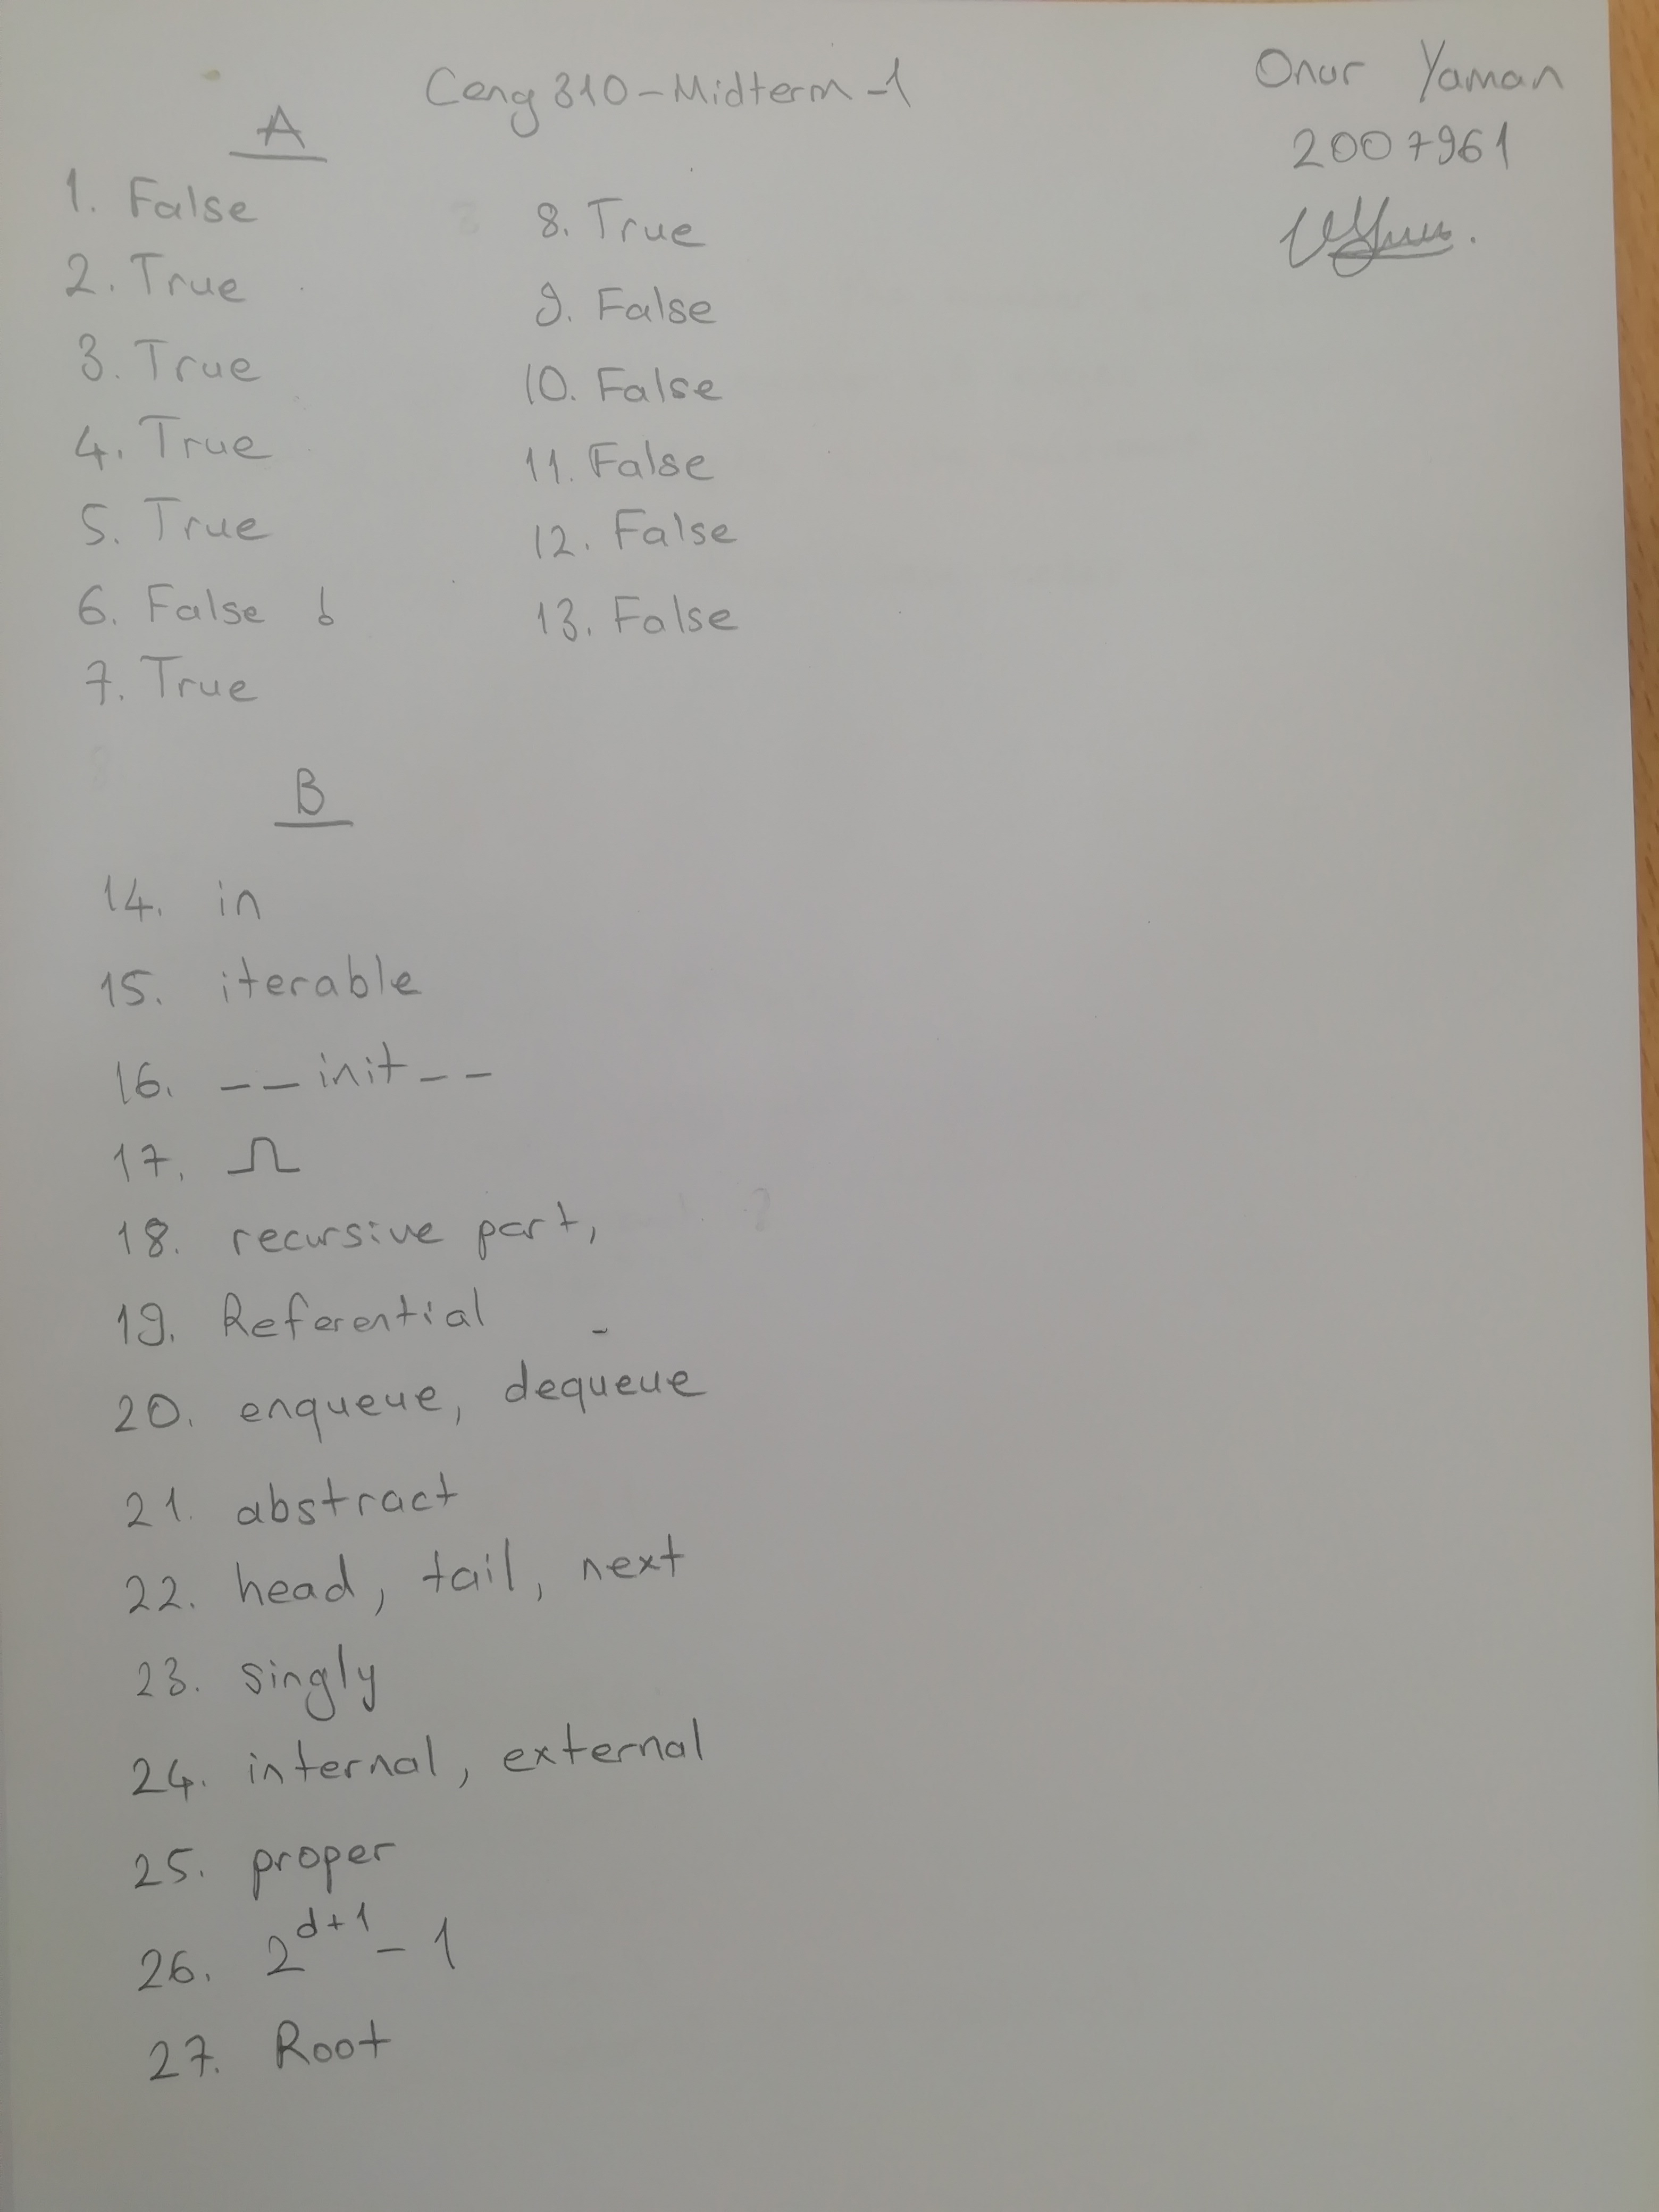 Ceng 310-Midterm-1
Onur Yaman
2007961
A
1. False
2. True
3. True
4. True
5. True
6. False
7. True
8. True
9. False
10. False
11. False
12. False
13. False
B
14. in
15. iterable
16. __init__
17. Ω
18. recursive part,
19. Referential
20. enqueue, dequeue
21. abstract
22. head, tail, next
23. singly
24. internal, external
25. proper
26. 2^{d+1} - 1
27. Root